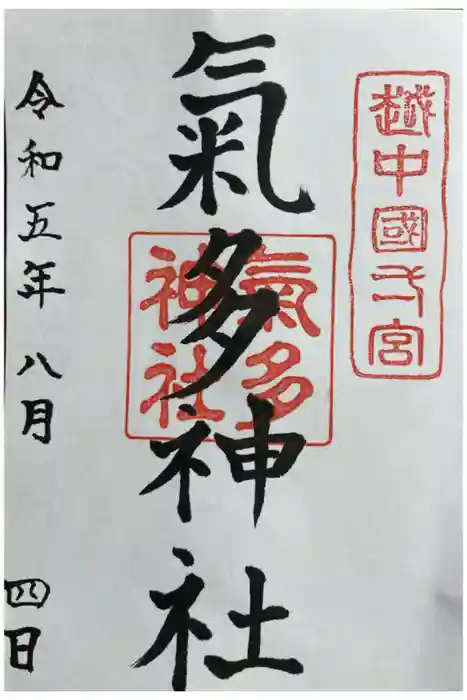 越中國一宮
氣多神社
氣多
神社
令和五年八月四日